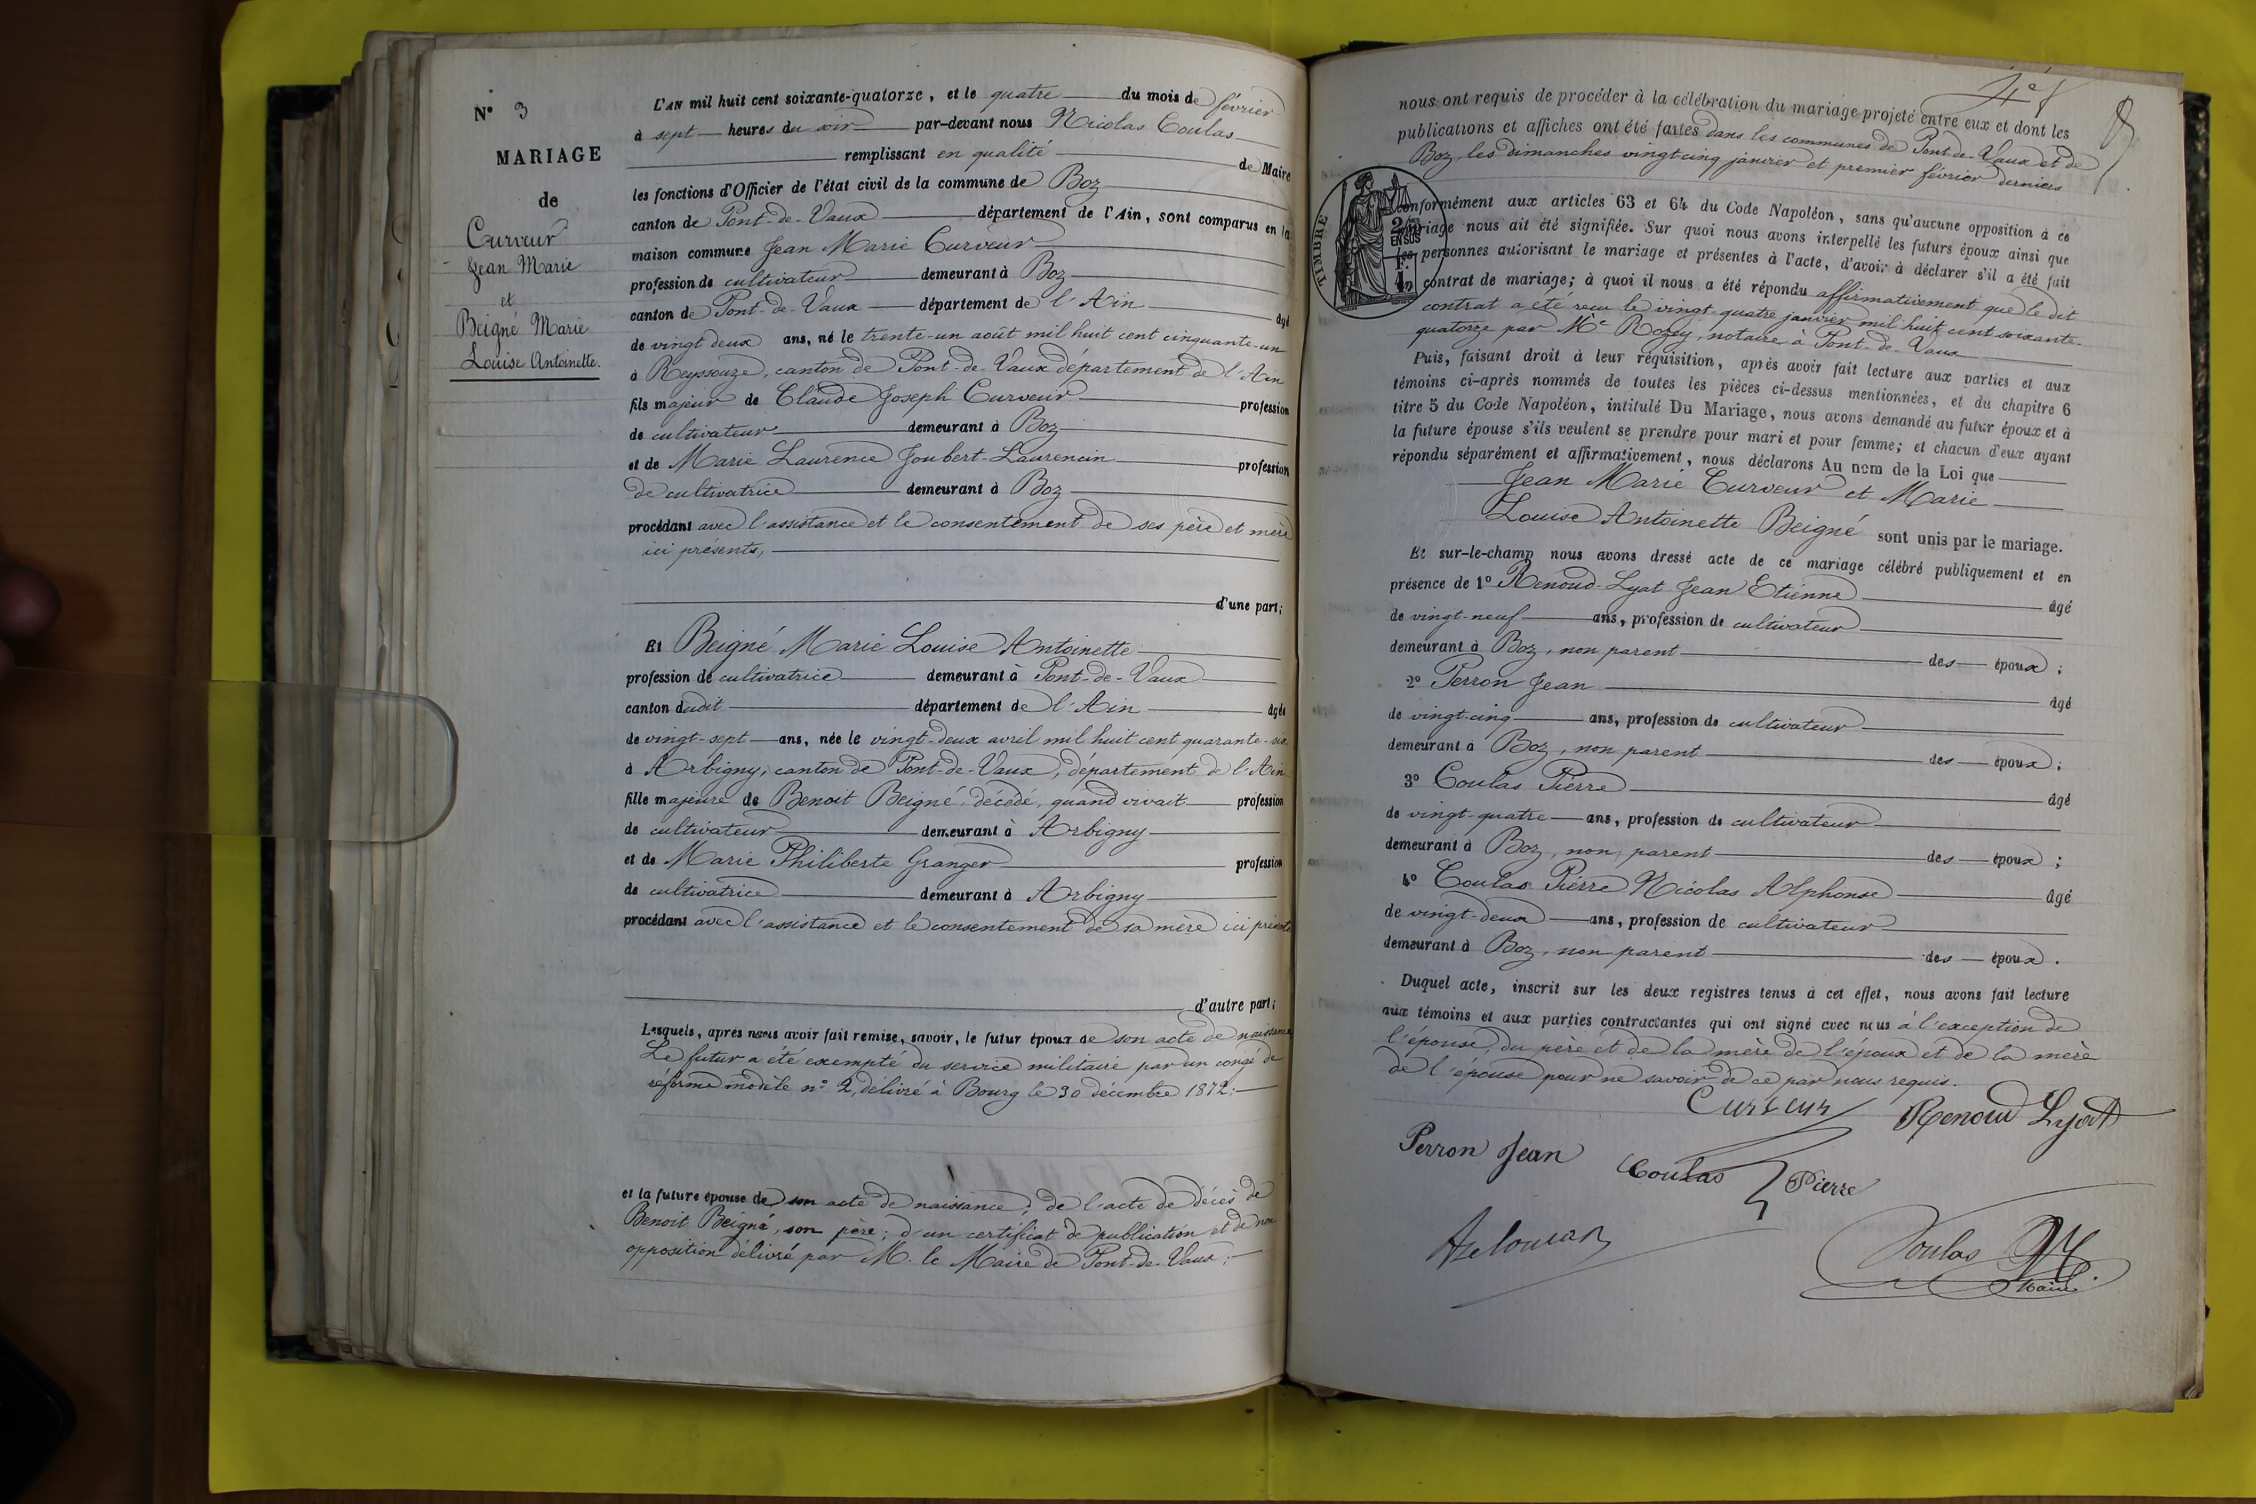 N° 3
MARIAGE
de
Curveur
Jean Marie
et
Beigné Marie
Louise Antoinette.
L'AN mil huit cent soixante-quatorze, et le quatre du mois de février
à sept heures du soir par-devant nous Nicolas Coulas
remplissant en qualité de Maire
les fonctions d'Officier de l'état civil de la commune de Boz
canton de Pont-de-Vaux département de l'Ain, sont comparus en la
maison commune Jean Marie Curveur
profession de cultivateur demeurant à Boz
canton de Pont-de-Vaux département de l'Ain âgé
de vingt deux ans, né le trente-un août mil huit cent cinquante-un
à Reyssouze, canton de Pont-de-Vaux département de l'Ain
fils majeur de Claude Joseph Curveur profession
de cultivateur demeurant à Boz
et de Marie Laurence Joubert-Laurencin profession
de cultivatrice demeurant à Boz
procédant avec l'assistance et le consentement de ses père et mère
ici présents,
d'une part;
Et Beigné Marie Louise Antoinette
profession de cultivatrice demeurant à Pont-de-Vaux
canton dudit département de l'Ain âgée
de vingt-sept ans, née le vingt-deux avril mil huit cent quarante-six
à Arbigny, canton de Pont-de-Vaux, département de l'Ain
fille majeure de Benoit Beigné, décédé, quand vivait profession
de cultivateur demeurant à Arbigny
et de Marie Philiberte Granger profession
de cultivatrice demeurant à Arbigny
procédant avec l'assistance et le consentement de sa mère ici présente
d'autre part;
Lesquels, après nous avoir fait remise, savoir, le futur époux de son acte de naissance
Le futur a été exempté du service militaire par un congé de
réforme modèle n° 2, délivré à Bourg le 30 décembre 1872;
et la future épouse de son acte de naissance; de l'acte de décès de
Benoit Beigné, son père; d'un certificat de publication et de non
opposition délivré par M. le Maire de Pont-de-Vaux;
nous ont requis de procéder à la célébration du mariage projeté entre eux et dont les
publications et affiches ont été faites dans les communes de Pont-de-Vaux et de
Boz, les dimanches vingt-cinq janvier et premier février derniers
TIMBRE
2/10
EN SUS
conformément aux articles 63 et 64 du Code Napoléon, sans qu'aucune opposition à ce
mariage nous ait été signifiée. Sur quoi nous avons interpellé les futurs époux ainsi que
les personnes autorisant le mariage et présentes à l'acte, d'avoir à déclarer s'il a été fait
contrat de mariage; à quoi il nous a été répondu affirmativement que le dit
contrat a été reçu le vingt-quatre janvier mil huit cent soixante-
quatorze par Me Rozey, notaire, à Pont-de-Vaux
Puis, faisant droit à leur réquisition, après avoir fait lecture aux parties et aux
témoins ci-après nommés de toutes les pièces ci-dessus mentionnées, et du chapitre 6
titre 5 du Code Napoléon, intitulé Du Mariage, nous avons demandé au futur époux et à
la future épouse s'ils veulent se prendre pour mari et pour femme; et chacun d'eux ayant
répondu séparément et affirmativement, nous déclarons Au nom de la Loi que
Jean Marie Curveur et Marie
Louise Antoinette Beigné sont unis par le mariage.
Et sur-le-champ nous avons dressé acte de ce mariage célébré publiquement et en
présence de 1° Renoud-Lyat Jean Etienne âgé
de vingt-neuf ans, profession de cultivateur
demeurant à Boz, non parent des époux;
2° Perron Jean âgé
de vingt-cinq ans, profession de cultivateur
demeurant à Boz, non parent des époux;
3° Coulas Pierre âgé
de vingt-quatre ans, profession de cultivateur
demeurant à Boz, non parent des époux;
4° Coulas Pierre Nicolas Alphonse âgé
de vingt-deux ans, profession de cultivateur
demeurant à Boz, non parent des époux.
Duquel acte, inscrit sur les deux registres tenus à cet effet, nous avons fait lecture
aux témoins et aux parties contractantes qui ont signé avec nous à l'exception de
l'épouse, du père et de la mère de l'époux et de la mère
de l'épouse pour ne savoir de ce par nous requis.
Curveur Renoud Lyat
Perron Jean
Coulas Pierre
Coulas
Maire